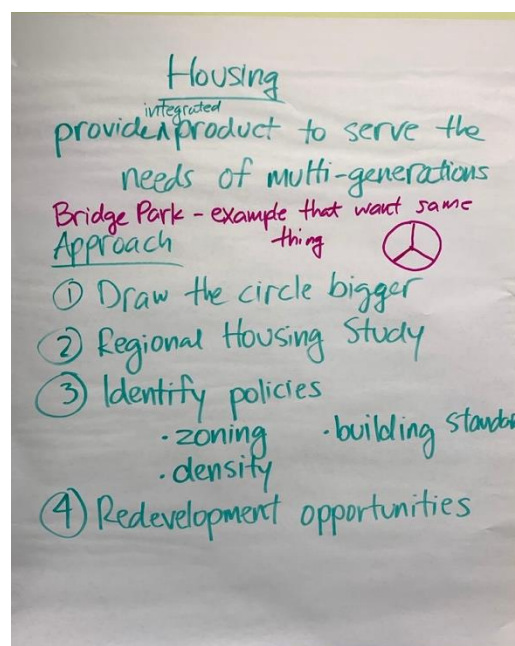 Housing
integrated
provide ^ product to serve the
needs of multi-generations
Bridge Park - example that want same
thing
Approach
① Draw the circle bigger
② Regional Housing Study
③ Identify policies
· zoning · building standar
· density
④ Redevelopment opportunities